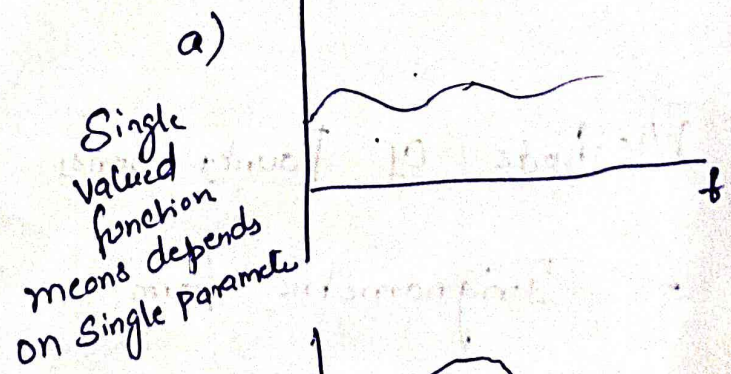 a)
Single
valued
function
means depends
on Single Paramete
t